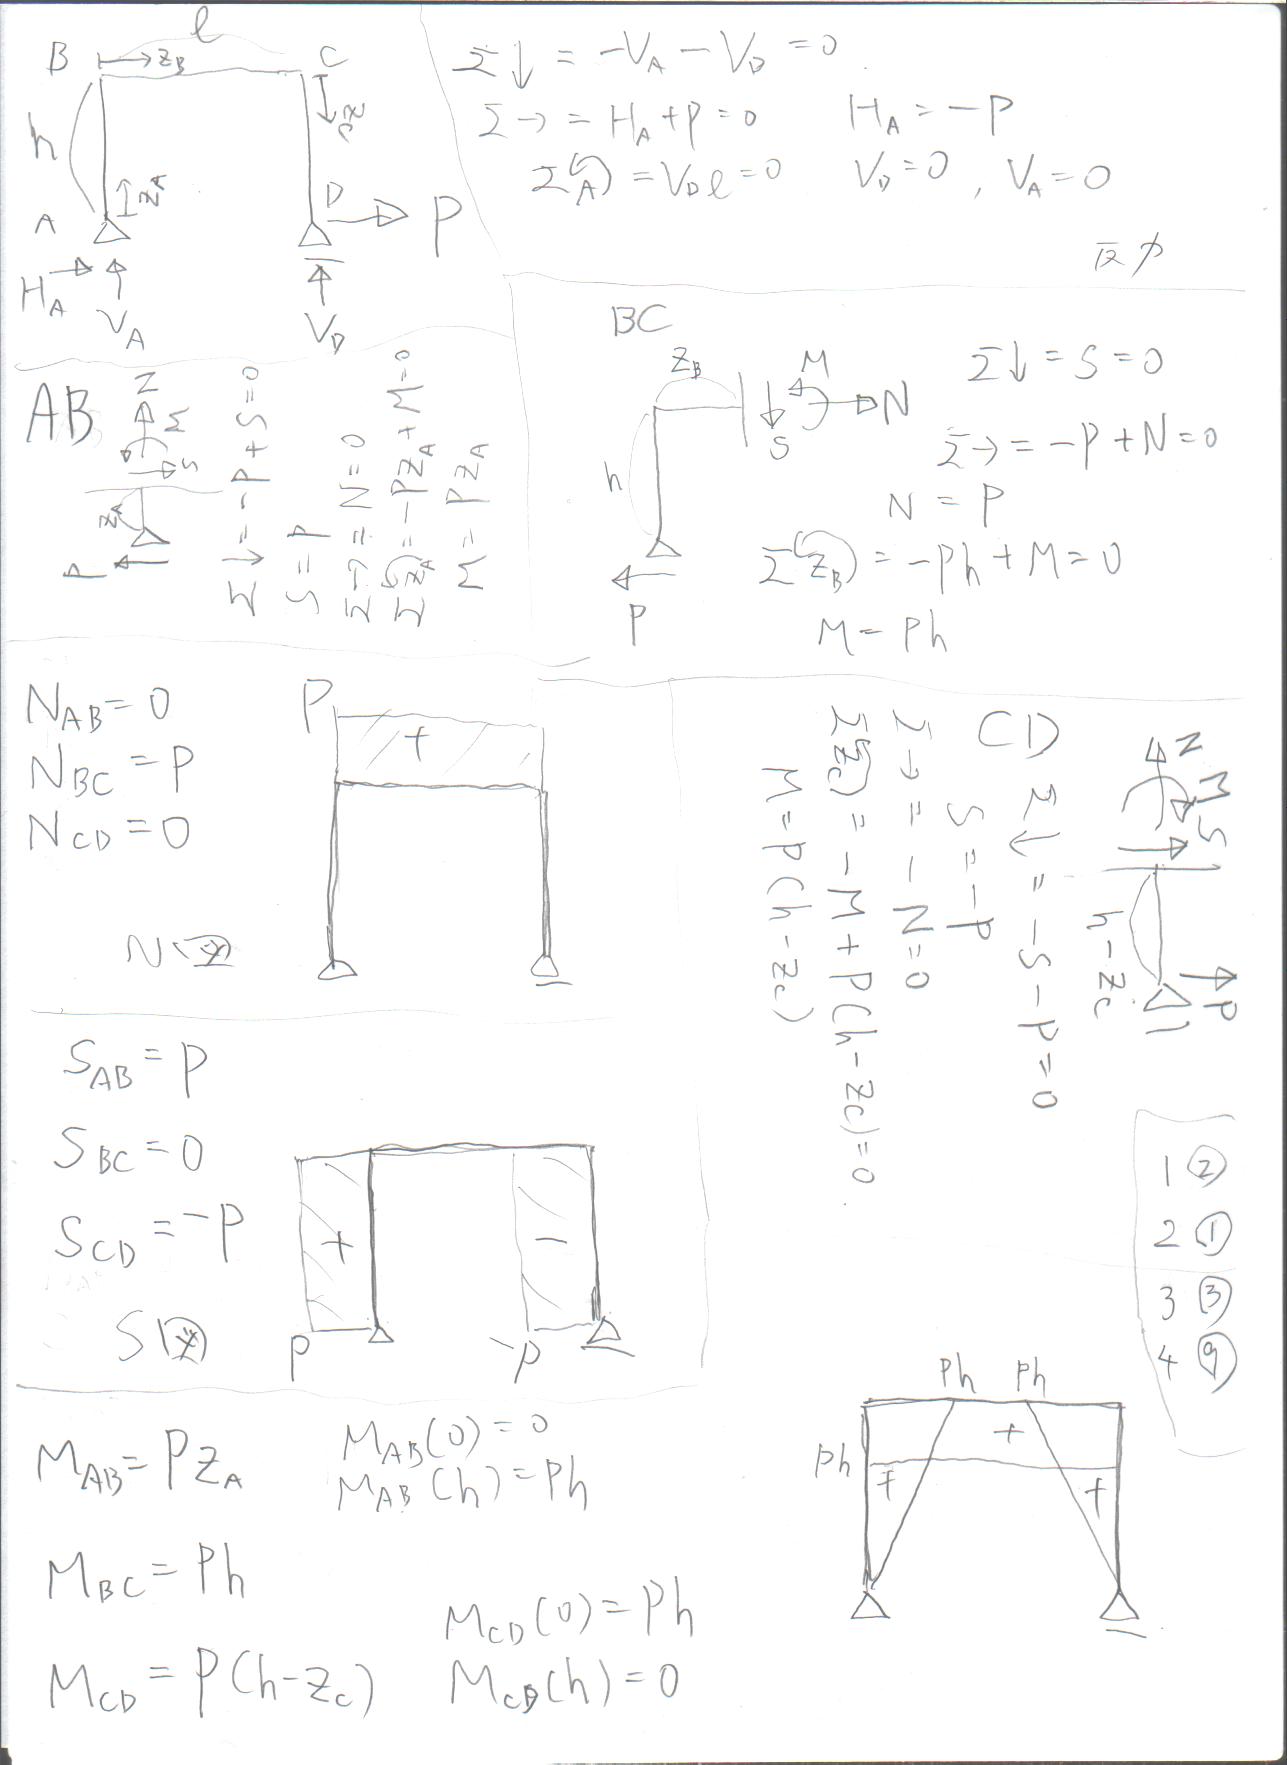 l
B
z_B
C
z_C
h
z_A
A
D
P
H_A
V_A
V_D
Σ↓ = -V_A - V_D = 0
Σ→ = H_A + P = 0 H_A = -P
Σ(A) = V_D l = 0 V_D = 0 , V_A = 0
反力
AB
N
M
S
z_A
P
Σ↓ = -P + S = 0
S = P
Σ→ = N = 0
Σ(z_A) = -Pz_A + M = 0
M = Pz_A
BC
z_B
M
N
S
h
P
Σ↓ = S = 0
Σ→ = -P + N = 0
N = P
Σ(z_B) = -Ph + M = 0
M = Ph
N_AB = 0
N_BC = P
N_CD = 0
P
+
N図
CD
N
M
S
h-z_C
P
Σ↓ = -S - P = 0
S = -P
Σ→ = -N = 0
Σ(z_C) = -M + P(h-z_C) = 0
M = P(h-z_C)
S_AB = P
S_BC = 0
S_CD = -P
S図
+
-
P
-P
1 ②
2 ①
3 ③
4 ⑨
M_AB = Pz_A
M_AB(0) = 0
M_AB(h) = Ph
M_BC = Ph
M_CD = P(h-z_C)
M_CD(0) = Ph
M_CD(h) = 0
Ph Ph
Ph
+
+
+